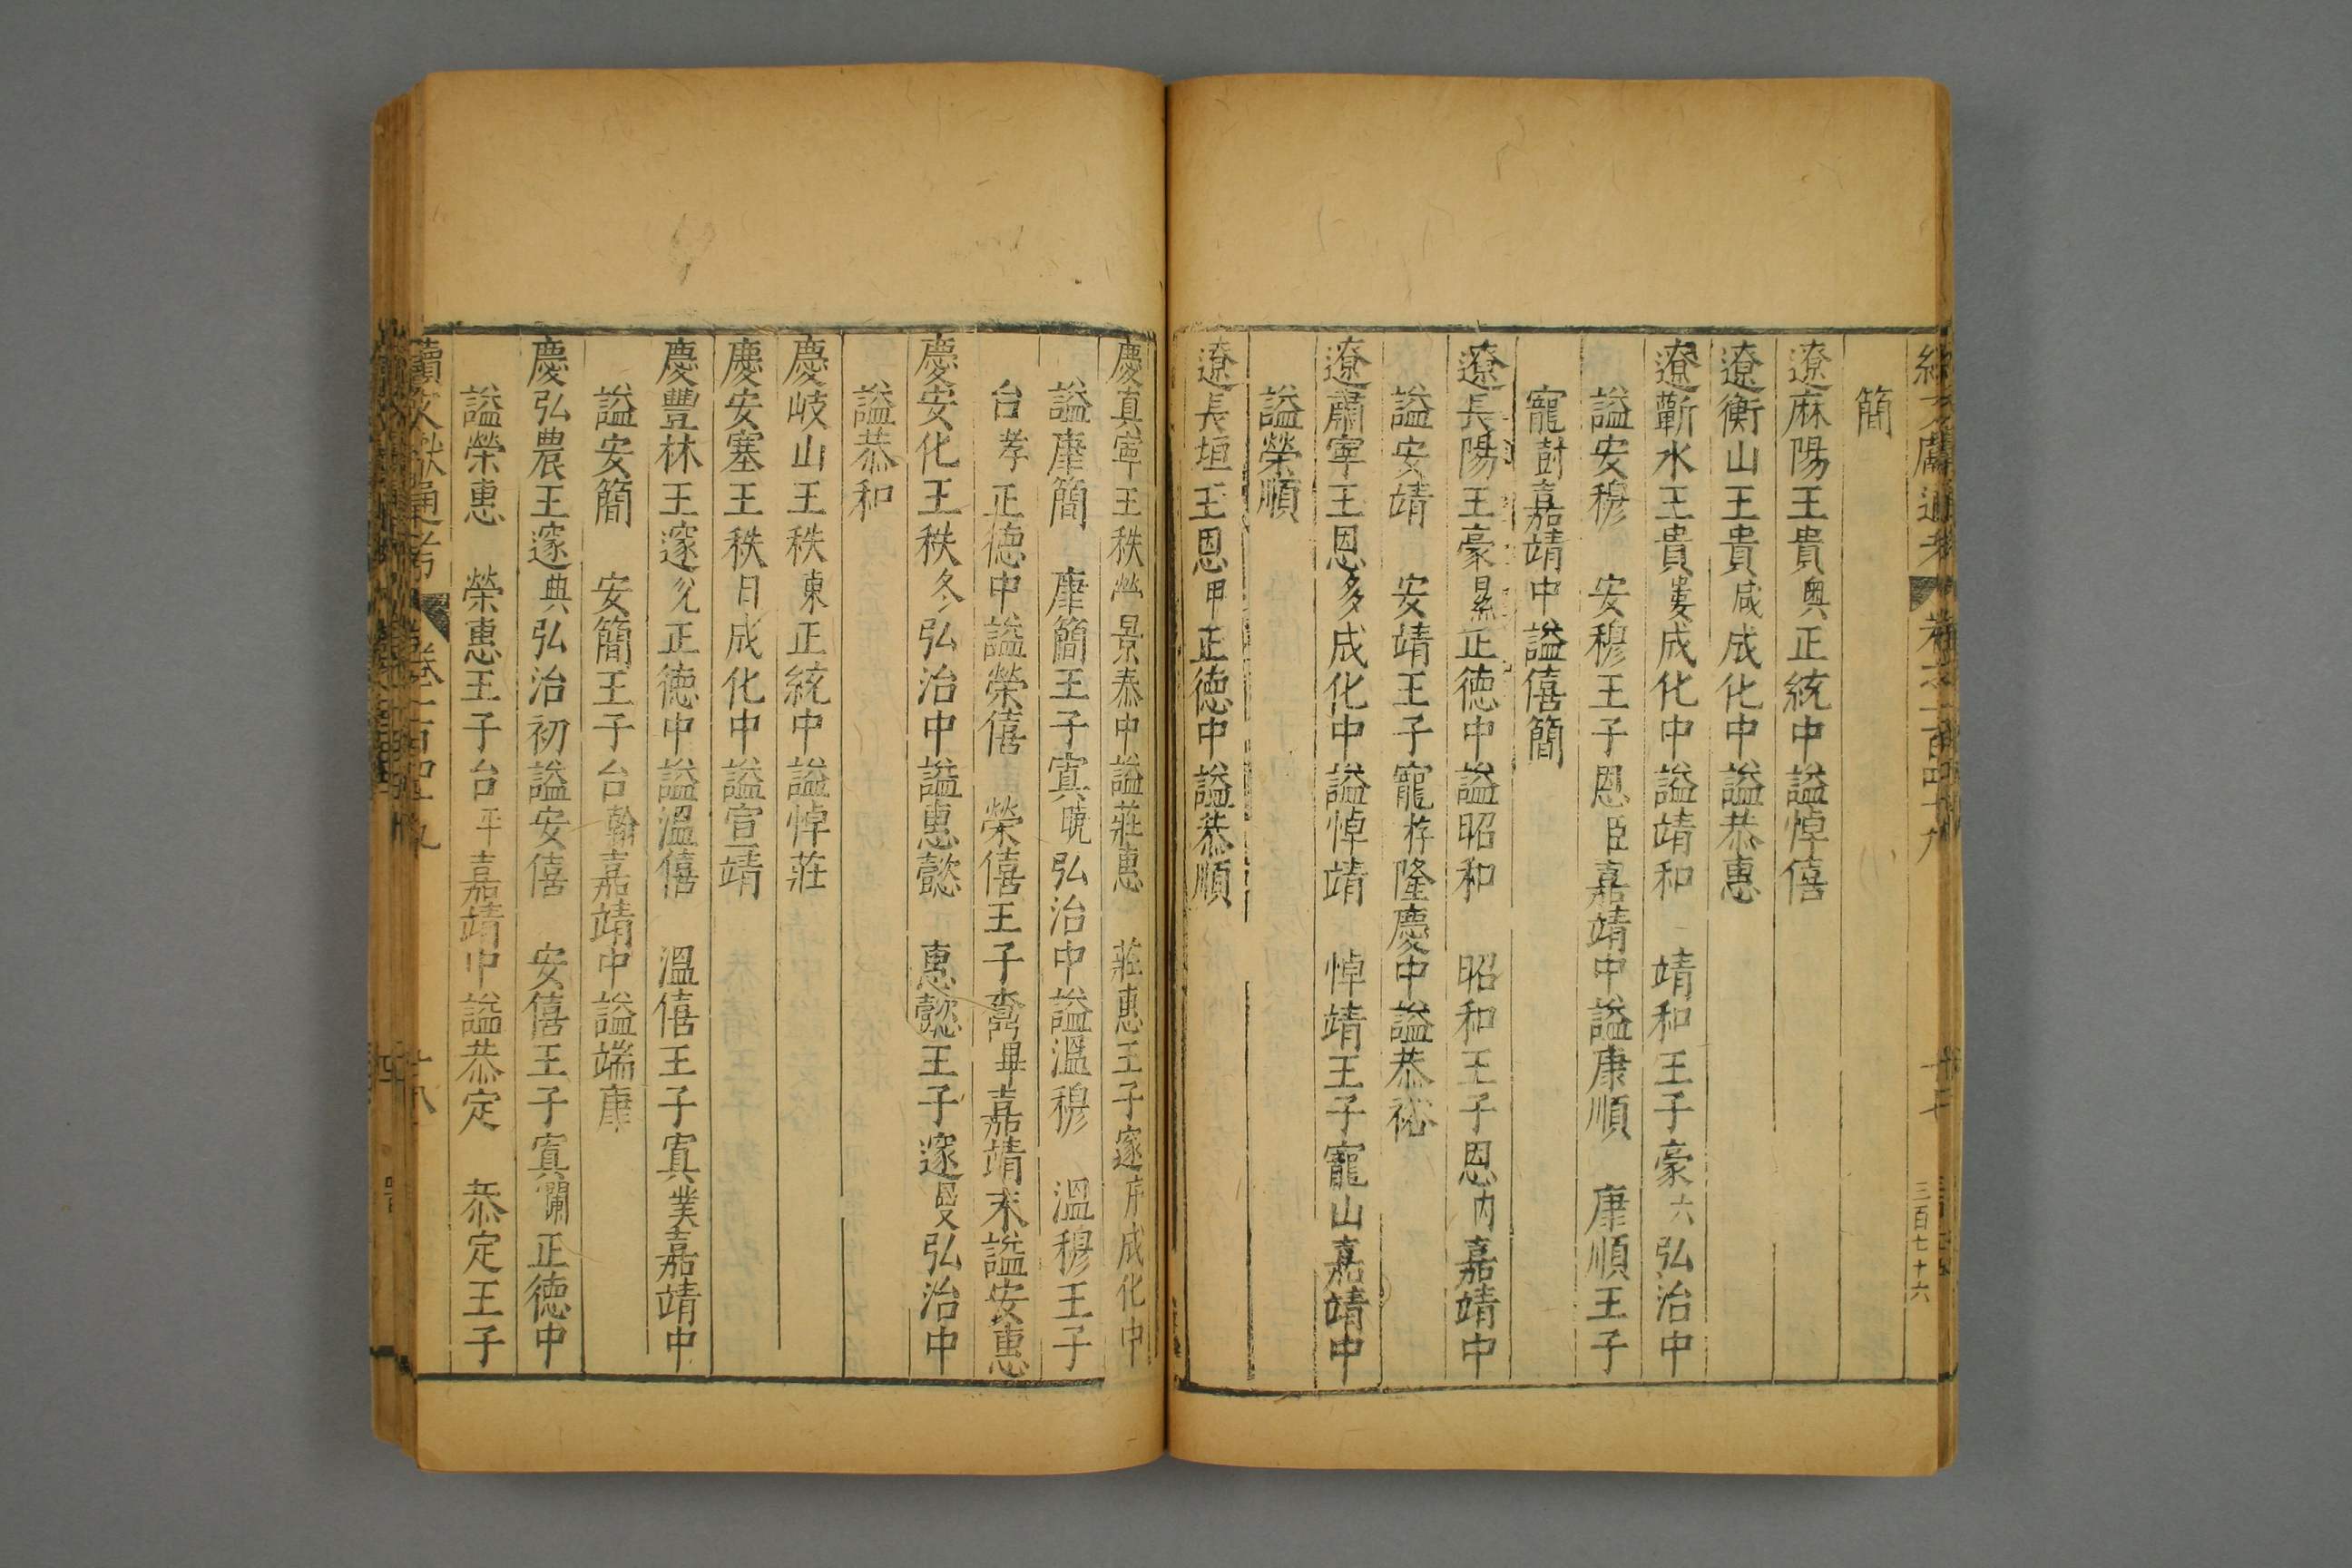 續文獻通考 卷之一百四十九 十七 三百七十六
簡
遼麻陽王貴㸁正統中謚悼僖
遼衡山王貴㙈成化中謚恭惠
遼蘄水王貴㙺成化中謚靖和 靖和王子豪 弘治中
謚安穆 安穆王子恩 嘉靖中謚康順 康順王子
寵 嘉靖中謚僖簡
遼長陽王豪 正德中謚昭和 昭和王子恩 嘉靖中
謚安靖 安靖王子寵 隆慶中謚恭裕
遼肅寧王恩 成化中謚悼靖 悼靖王子寵 嘉靖中
謚榮順
遼長垣王恩 正德中謚恭順
慶真寧王秩 景泰中謚莊惠 莊惠王子邃 成化中
謚康簡 康簡王子寘 弘治中謚溫穆 溫穆王子
台 正德中謚榮僖 榮僖王子 嘉靖末謚安惠
慶安化王秩 弘治中謚惠懿 惠懿王子邃 弘治中
謚恭和
慶岐山王秩 正統中謚悼莊
慶安塞王秩 成化中謚宣靖
慶豐林王邃 正德中謚溫僖 溫僖王子寘 嘉靖中
謚安簡 安簡王子台 嘉靖中謚端康
慶弘農王邃 弘治初謚安僖 安僖王子寘 正德中
謚榮惠 榮惠王子台 嘉靖中謚恭定 恭定王子
續文獻通考 卷之一百四十九 十八